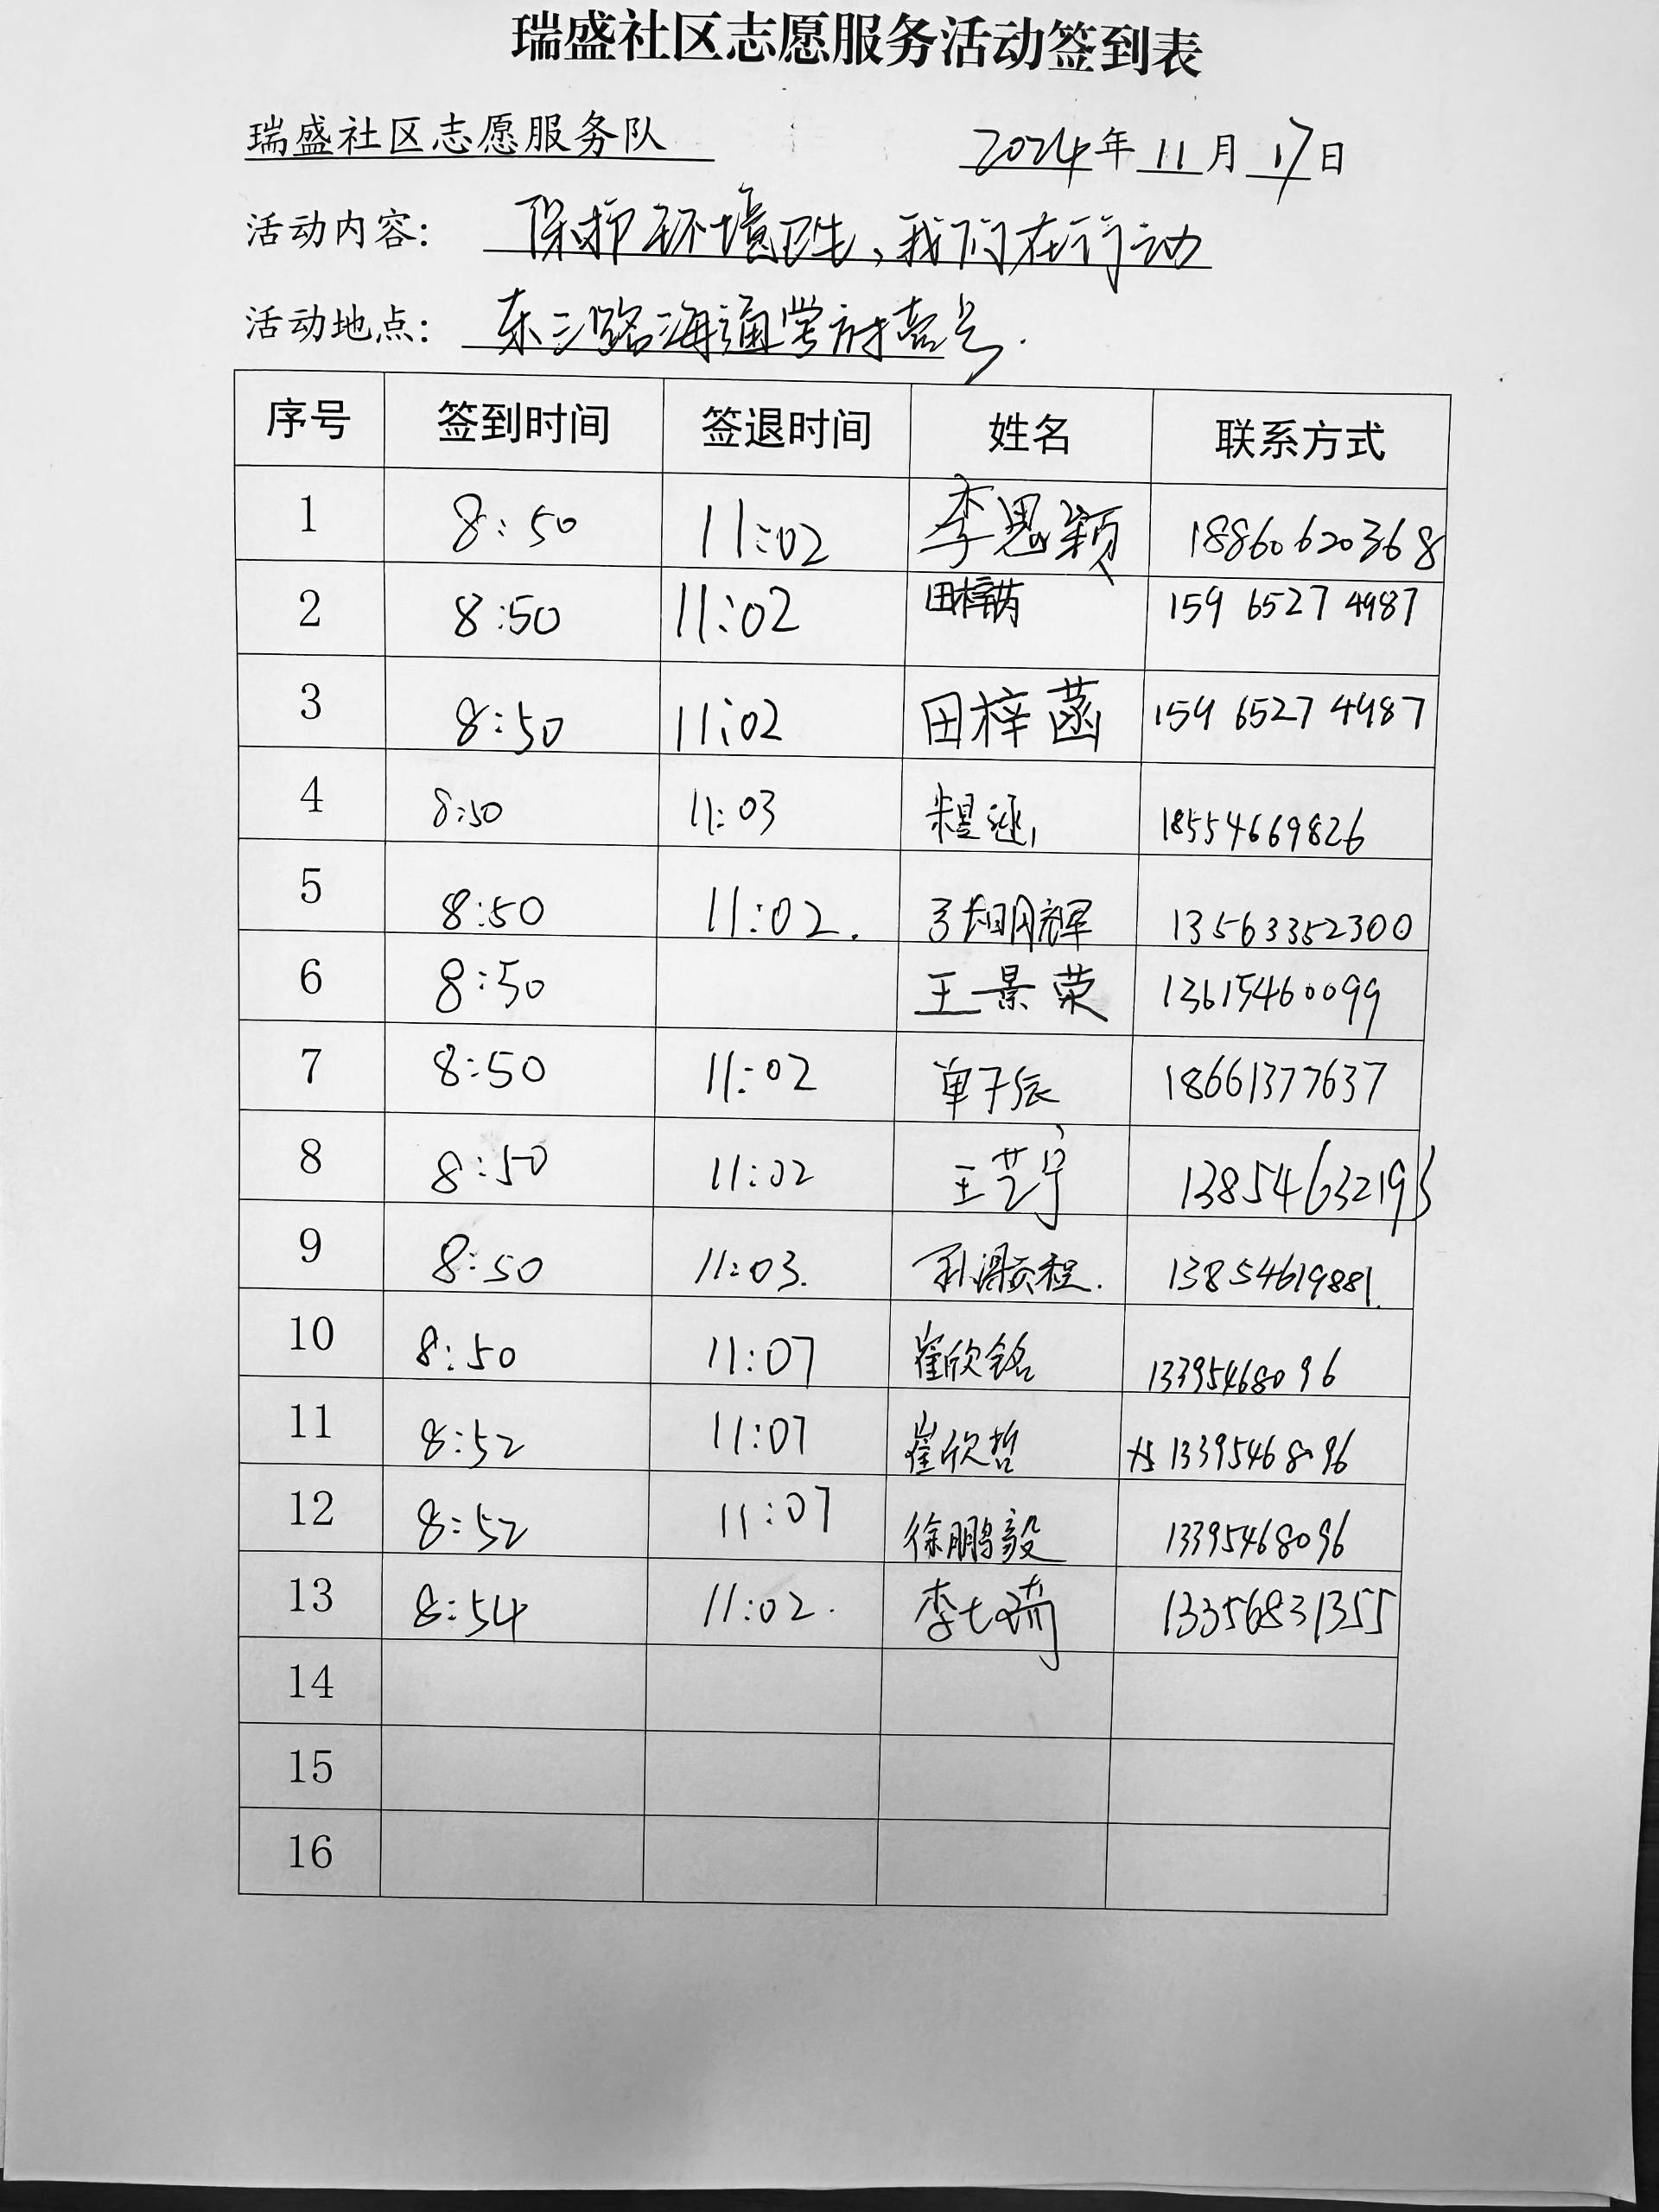 瑞盛社区志愿服务活动签到表
瑞盛社区志愿服务队 2024年11月17日
活动内容: 保护环境卫生,我们在行动
活动地点: 东三路海通学府壹号.
序号 签到时间 签退时间 姓名 联系方式
1 8:50 11:02 李思颖 18860620368
2 8:50 11:02 田梓芮 159 6527 4987
3 8:50 11:02 田梓菡 159 6527 4987
4 8:50 11:03 18554669826
5 8:50 11:02. 张明辉 13563352300
6 8:50 王景荣 13615460099
7 8:50 11:02 单子辰 18661377637
8 8:50 11:02 王艺宁 13854632193
9 8:50 11:03. 13854619881.
10 8:50 11:07 崔欣铭 13395468096
11 8:52 11:07 崔欣哲 13395468096
12 8:52 11:07 徐鹏毅 13395468096
13 8:54 11:02. 13356831355
14
15
16